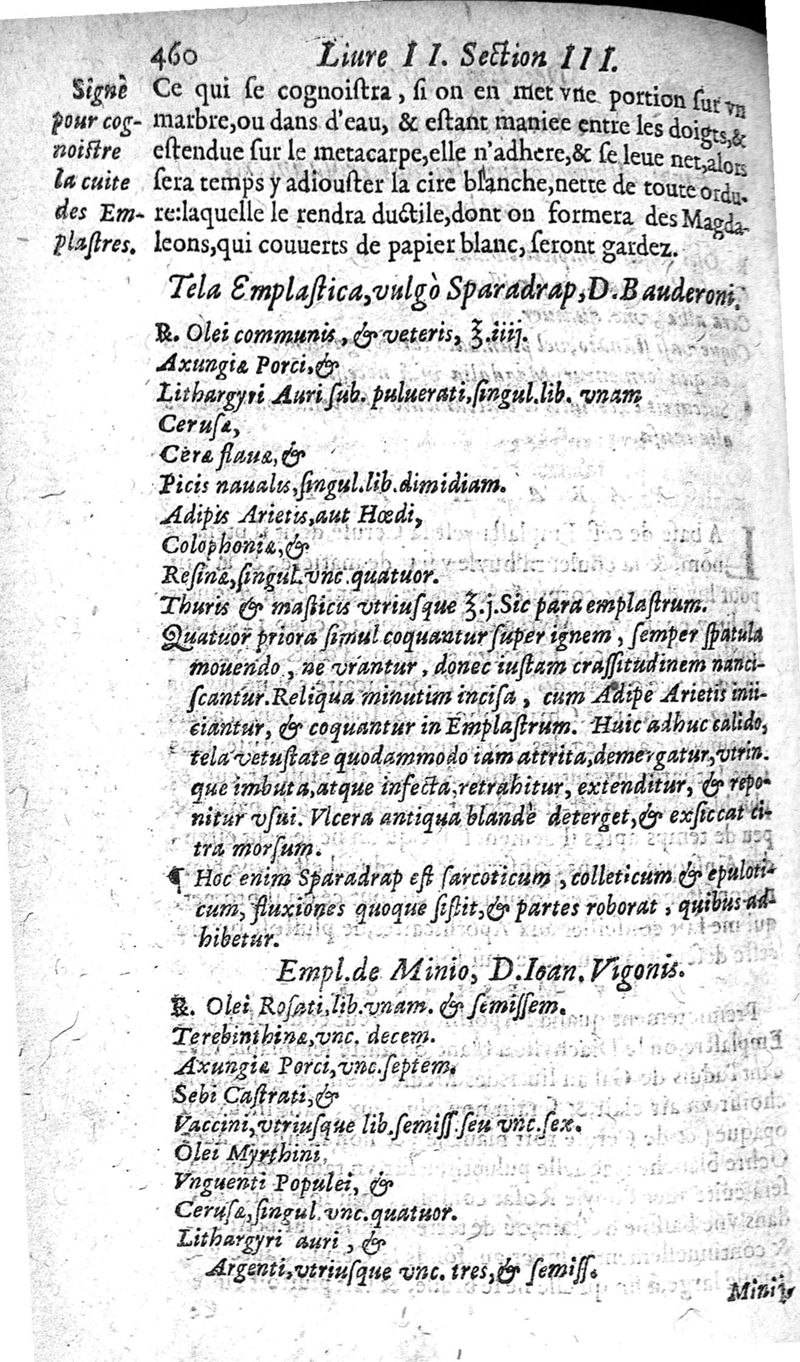 460 Liure II. Section III.
Signe
pour cog-
noistre
la cuite
des Em-
plastres.
Ce qui se cognoistra, si on en met vne portion sur vn
marbre, ou dans d'eau, & estant maniee entre les doigts, &
estendue sur le metacarpe, elle n'adhere, & se leue net, alors
sera temps y adiouster la cire blanche, nette de toute ordu-
re: laquelle le rendra ductile, dont on formera des Magda-
leons, qui couuerts de papier blanc, seront gardez.
Tela Emplastica, vulgò Sparadrap, D. Bauderoni.
℞. Olei communis, & veteris, ℥.iiij.
Axungiæ Porci, &
Lithargyri Auri sub. puluerati, singul. lib. vnam
Cerusæ,
Ceræ flauæ, &
Picis naualis, singul. lib. dimidiam.
Adipis Arietis, aut Hœdi,
Colophoniæ, &
Resinæ, singul. vnc. quatuor.
Thuris & masticis vtriusque ℥.j. Sic para emplastrum.
Quatuor priora simul coquantur super ignem, semper spatula
mouendo, ne vrantur, donec iustam crassitudinem nanci-
scantur. Reliqua minutim incisa, cum Adipe Arietis inii-
ciantur, & coquantur in Emplastrum. Huic adhuc calido,
tela vetustate quodammodo iam attrita, demergatur, vtrin-
que imbuta, atque infecta, retrahitur, extenditur, & repo-
nitur vsui. Vlcera antiqua blandè deterget, & exsiccat ci-
tra morsum.
¶ Hoc enim Sparadrap est sarcoticum, colleticum & epuloti-
cum, fluxiones quoque sistit, & partes roborat, quibus ad-
hibetur.
Empl. de Minio, D. Ioan. Vigonis.
℞. Olei Rosati, lib. vnam. & semissem.
Terebinthinæ, vnc. decem.
Axungiæ Porci, vnc. septem.
Sebi Castrati, &
Vaccini, vtriusque lib. semiss. seu vnc. sex.
Olei Myrthini,
Vnguenti Populei, &
Cerusæ, singul. vnc. quatuor.
Lithargyri auri, &
Argenti, vtriusque vnc. tres, & semiss.
Minij,